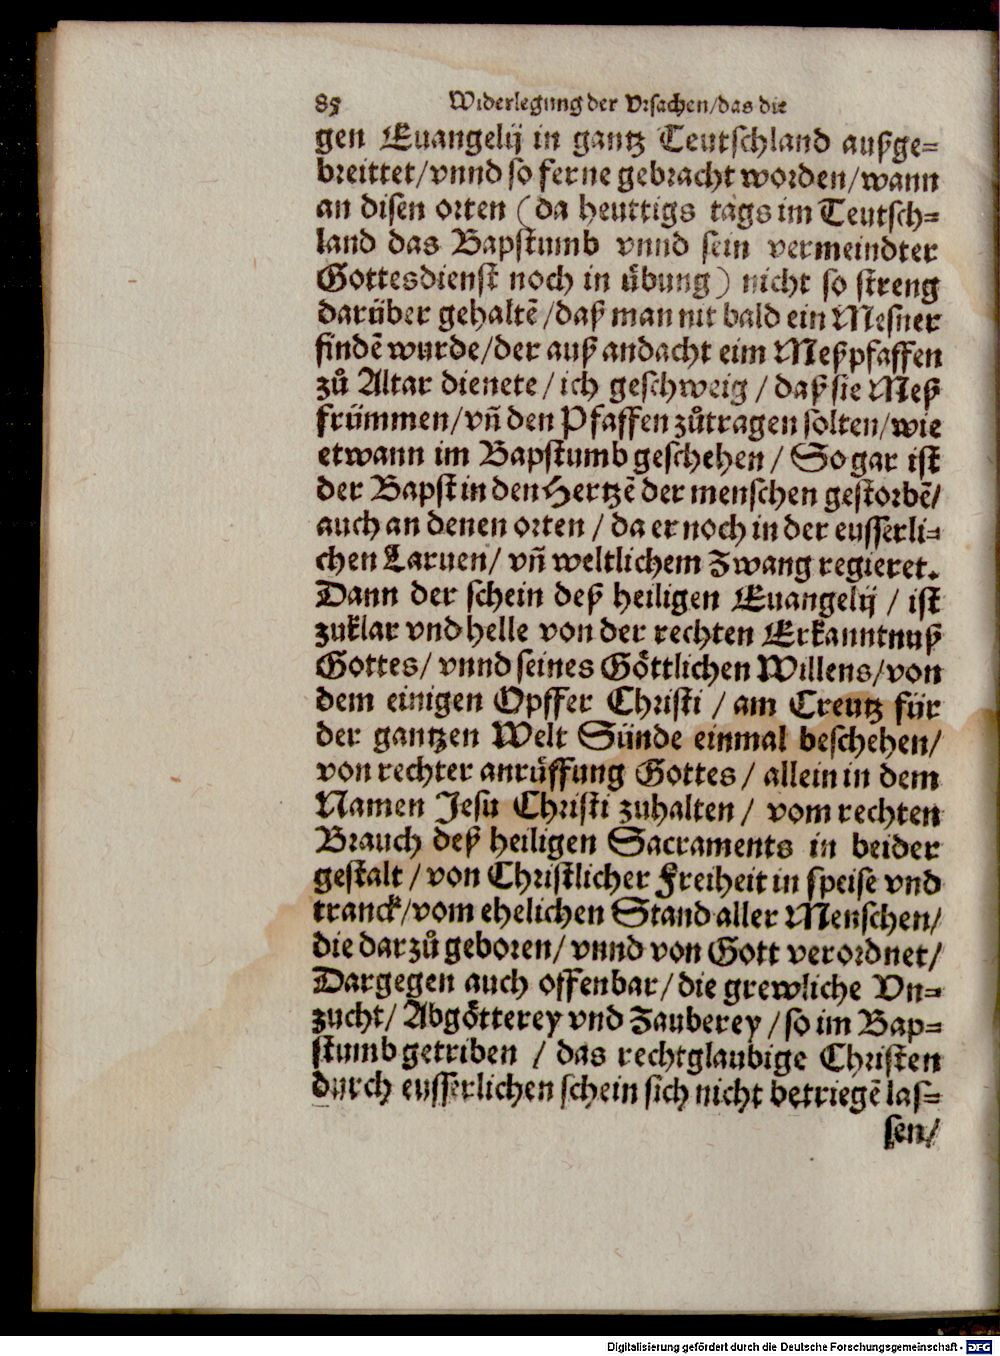 85 Widerlegung der Vrsachen/das die
gen Euangelij in gantz Teutschland außge=
breittet/vnnd so ferne gebracht worden/wann
an disen orten (da heuttigs tags im Teutsch=
land das Bapstumb vnnd sein vermeindter
Gottesdienst noch in uͤbung) nicht so streng
daruͤber gehaltẽ/daß man nit bald ein Mesner
findẽ wurde/der auß andacht eim Meßpfaffen
zuͦ Altar dienete/ich geschweig/daß sie Meß
fruͤmmen/vñ den Pfaffen zuͦtragen solten/wie
etwann im Bapstumb geschehen/So gar ist
der Bapst in den Hertzẽ der menschen gestorbẽ/
auch an denen orten/da er noch in der eusserli=
chen Laruen/vñ weltlichem Zwang regieret.
Dann der schein deß heiligen Euangelij/ist
zuklar vnd helle von der rechten Erkanntnuß
Gottes/vnnd seines Goͤttlichen Willens/von
dem einigen Opffer Christi/am Creutz fuͤr
der gantzen Welt Suͤnde einmal beschehen/
von rechter anruͤffung Gottes/allein in dem
Namen Jesu Christi zuhalten/vom rechten
Brauch deß heiligen Sacraments in beider
gestalt/von Christlicher Freiheit in speise vnd
tranck/vom ehelichen Stand aller Menschen/
die darzuͦ geboren/vnnd von Gott verordnet/
Dargegen auch offenbar/die grewliche Vn=
zucht/Abgoͤtterey vnd Zauberey/so im Bap=
stumb getriben/das rechtglaubige Christen
durch eusserlichen schein sich nicht betriegẽ las=
sen/
Digitalisierung gefördert durch die Deutsche Forschungsgemeinschaft - DFG